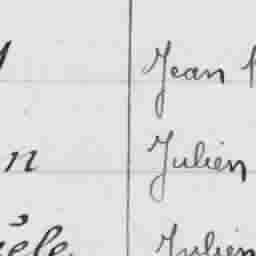 Jean
n Julien
èle Julien